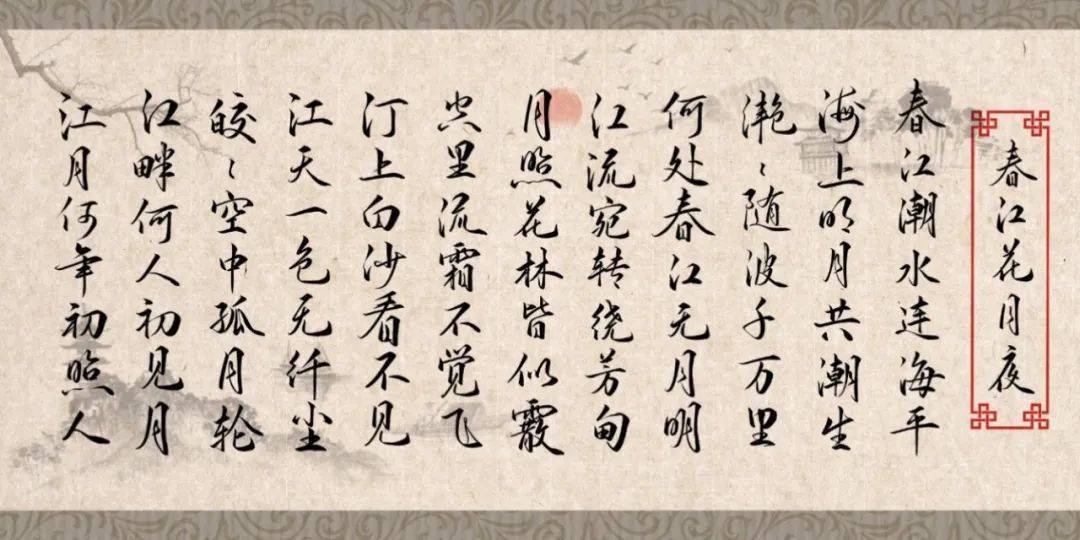 春江花月夜
春江潮水连海平
海上明月共潮生
滟〻随波千万里
何处春江无月明
江流宛转绕芳甸
月照花林皆似霰
空里流霜不觉飞
汀上白沙看不见
江天一色无纤尘
皎〻空中孤月轮
江畔何人初见月
江月何年初照人